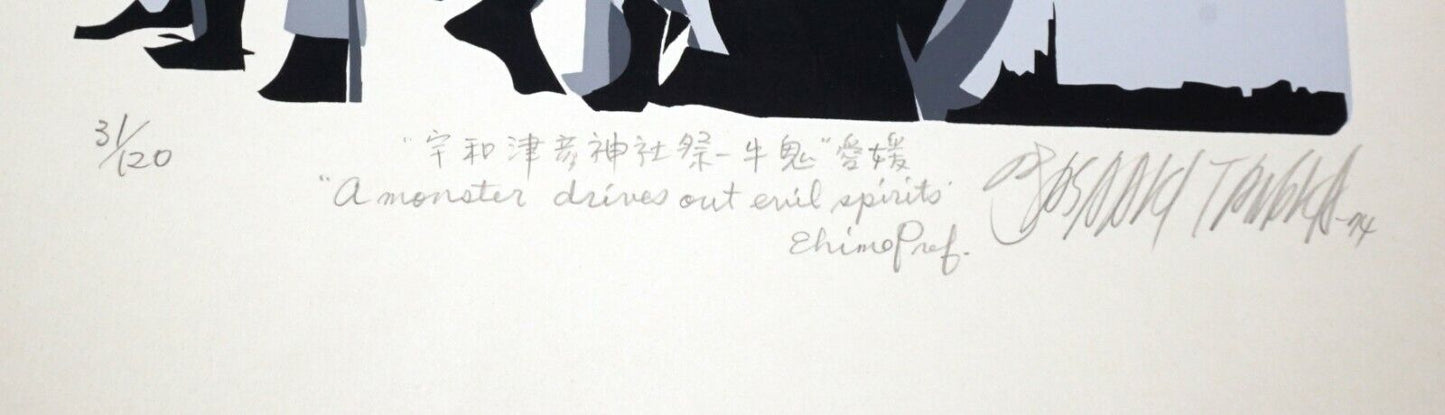 31/120
"宇和津彦神社祭-牛鬼"愛媛
"A monster drives out evil spirits"
Ehime Pref.
Yosaku Tanaka -74